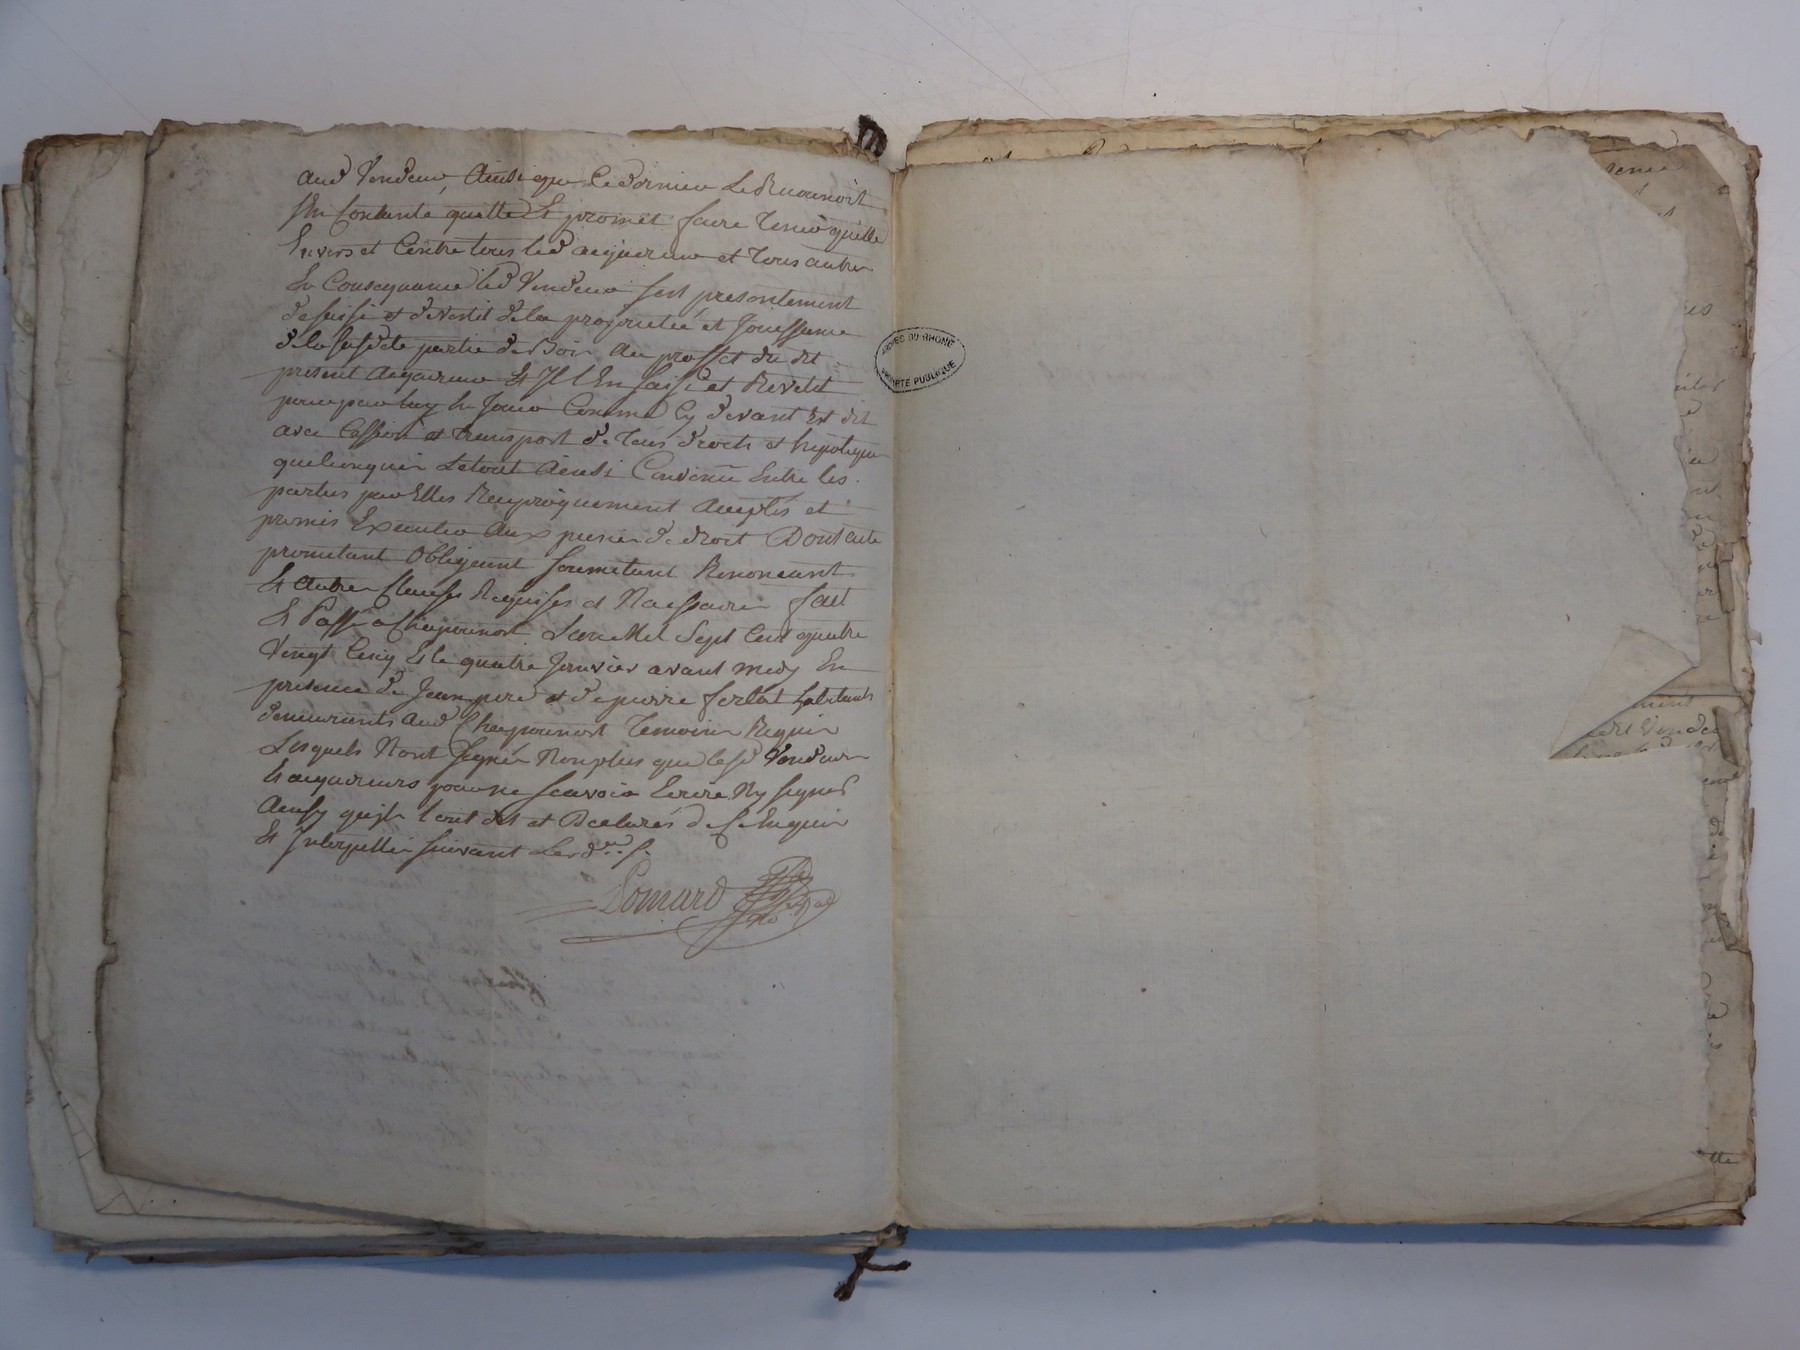 aud Vendeur, Ainsi que ce dernier Le Reconnoit
s'En Contente quitte Et promet faire Tenir quitte
Envers et Contre tous led acquereur et Tous autres
En Consequance led Vendeur s'est presentement
desaisi et devestit de la proprietée et Jouissance
de la susdte partie de Bois Au proffet du dit
present Acquereur Et Il l'En saisi et Revetit
pour par luy En Jouir Comme Cy devant Est dit
avec Cession et transport de Tous droits et hypoteques
quelconques Letout Ainsi Convenu Entre les
parties par Elles Reciproquement Acceptés et
promis Executer Aux peines de droit Dont acte
prometant Obligeant soumetant Renonceant
Et Autres Clauses Requises et Necessaires fait
Et Passé a Chaponnost L'an Mil Sept Cent quatre
Vingt Cinq Et le quatre Janvier avant Midy En
presence de Jean pere et de pierre ferlat habitants
demeurants aud Chaponnost Temoins Requis
Lesquels N'ont signés Non plus que lesd Vendeur
Et acquereurs pour ne scavoir Ecrire Ny signer
Ainsy qu'ils l'ont dit et Declarés de ce Enquis
Et Interpellés suivant Les
Pomard
ARCHIVES DU RHÔNE
PROPRIÉTÉ PUBLIQUE